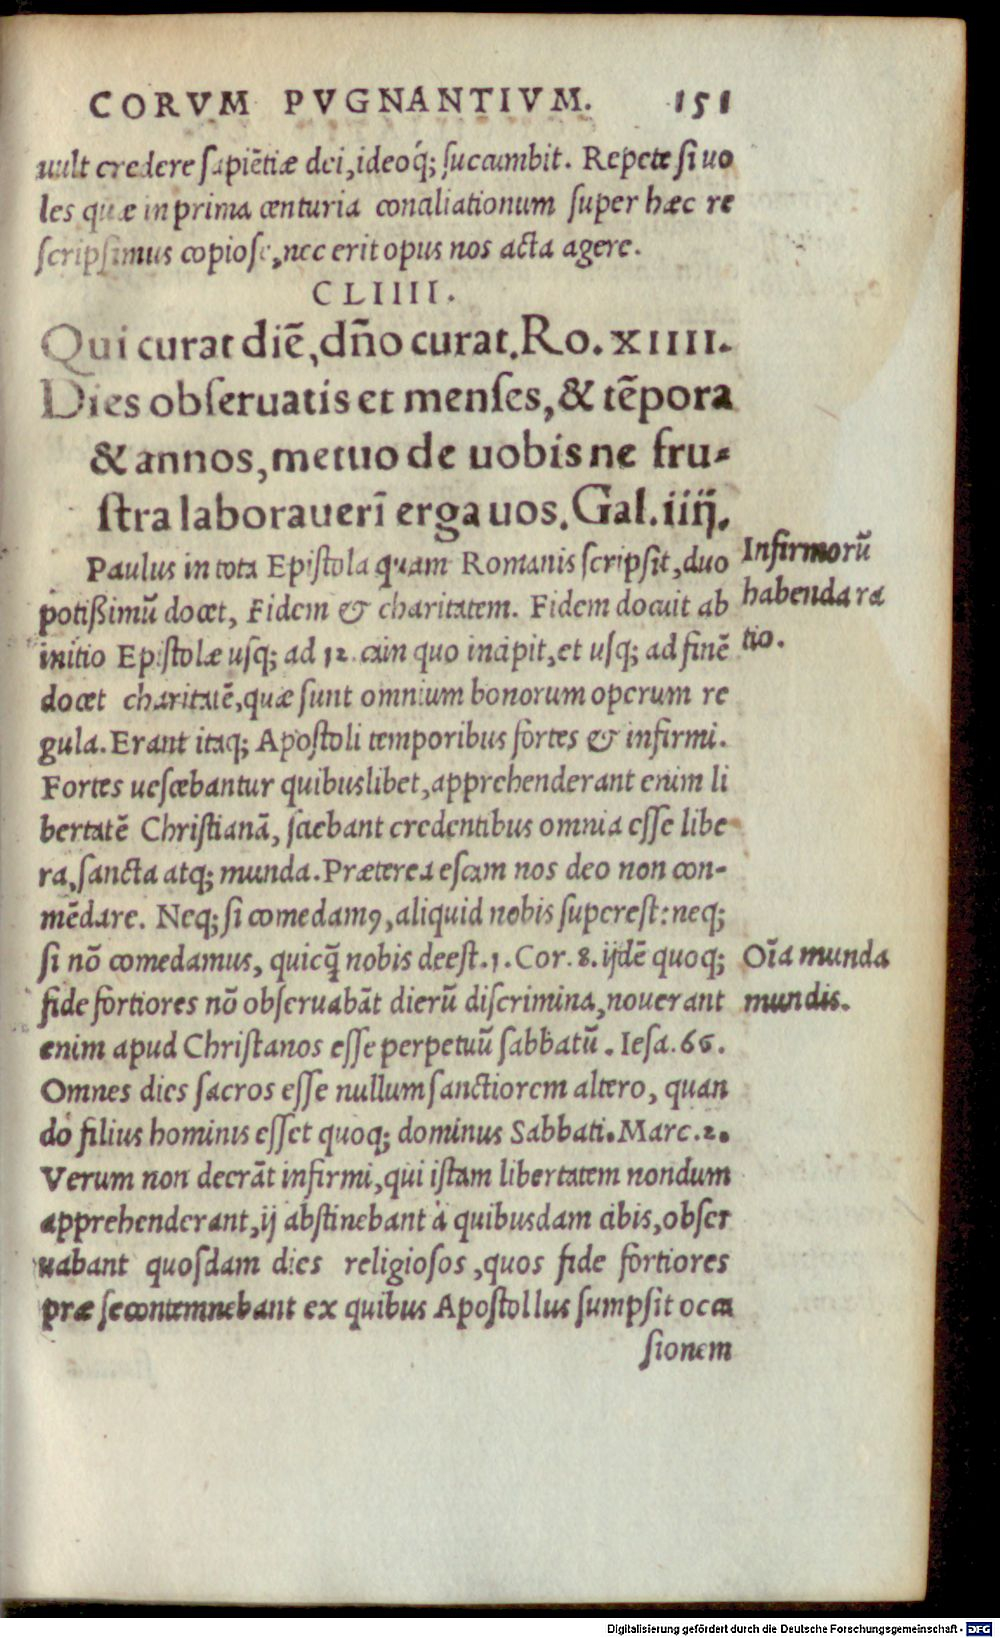 CORVM PVGNANTIVM. 151
uult credere sapiẽtiæ dei, ideoq́; succumbit. Repete si uo
les quæ in prima centuria conciliationum super hæc re
scripsimus copiose, nec erit opus nos acta agere.
CLIIII.
Qui curat diẽ, dño curat. Ro. XIIII.
Dies obseruatis et menses, & tẽpora
& annos, metuo de uobis ne fru-
stra laborauerĩ erga uos. Gal. iiij.
Paulus in tota Epistola quam Romanis scripsit, duo
potißimũ docet, Fidem & charitatem. Fidem docuit ab
initio Epistolæ usq; ad 12. cum quo incipit, et usq; ad finẽ
docet charitatẽ, quæ sunt omnium bonorum operum re
gula. Erant itaq; Apostoli temporibus fortes & infirmi.
Fortes uescebantur quibuslibet, apprehenderant enim li
bertatẽ Christianã, sciebant credentibus omnia esse libe
ra, sancta atq; munda. Præterea escam nos deo non con-
mẽdare. Neq; si comedamꝰ, aliquid nobis superest: neq;
si nõ comedamus, quicq̃ nobis deest. 1. Cor. 8. ijdẽ quoq;
fide fortiores nõ obseruabãt dierũ discrimina, nouerant
enim apud Christanos esse perpetuũ sabbatũ. Iesa. 66.
Omnes dies sacros esse nullum sanctiorem altero, quan
do filius hominis esset quoq; dominus Sabbati. Marc. 2.
Verum non deerãt infirmi, qui istam libertatem nondum
apprehenderant, ij abstinebant à quibusdam cibis, obser
uabant quosdam dies religiosos, quos fide fortiores
præ se contemnebant ex quibus Apostollus sumpsit occa
sionem
Infirmorũ
habenda ra
tio.
Oĩa munda
mundis.
Digitalisierung gefördert durch die Deutsche Forschungsgemeinschaft - DFG